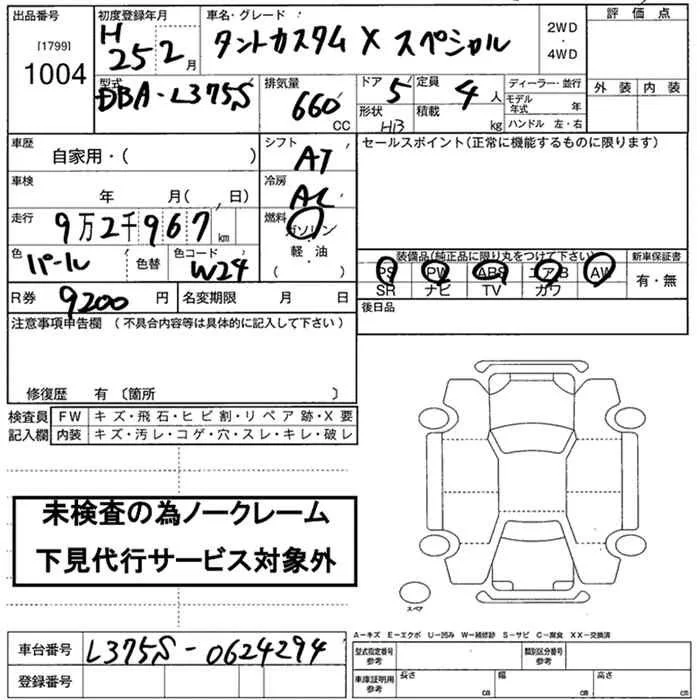 出品番号 初度登録年月 車名・グレード 評価点
[1799] H タントカスタム X スペシャル 2WD
1004 25 2月 ・
4WD
型式 排気量 ドア 定員 ディーラー・並行 外装 内装
DBA-L375S 660 5 4人 モデル年式 年
CC 形状 積載 ハンドル 左・右
HB kg
車歴 シフト セールスポイント(正常に機能するものに限ります)
自家用・( ) AT
車検 冷房
年 月( , 日) AC
走行 燃料
9万2千967km ガソリン
・
色 色替 色コード 軽油 装備品(純正品に限り丸をつけて下さい) 新車保証書
パール W24 ・
( ) PS PW ABS エアB AW 有・無
SR ナビ TV カワ
R券 9200円 名変期限 月 日 後日品
注意事項申告欄 (不具合内容等は具体的に記入して下さい)
修復歴 有 〔箇所 〕
検査員 FW キズ・飛石・ヒビ割・リペア跡・X要
記入欄 内装 キズ・汚レ・コゲ・穴・スレ・キレ・破レ
未検査の為ノークレーム
下見代行サービス対象外
スペア
A-キズ E-エクボ U-凹み W-補修跡 S-サビ C-腐食 XX-交換済
車台番号 L375S-0624294 型式指定番号 参考 類別区分番号 参考
登録番号 車庫証明用 参考 長さ cm 幅 cm 高さ cm